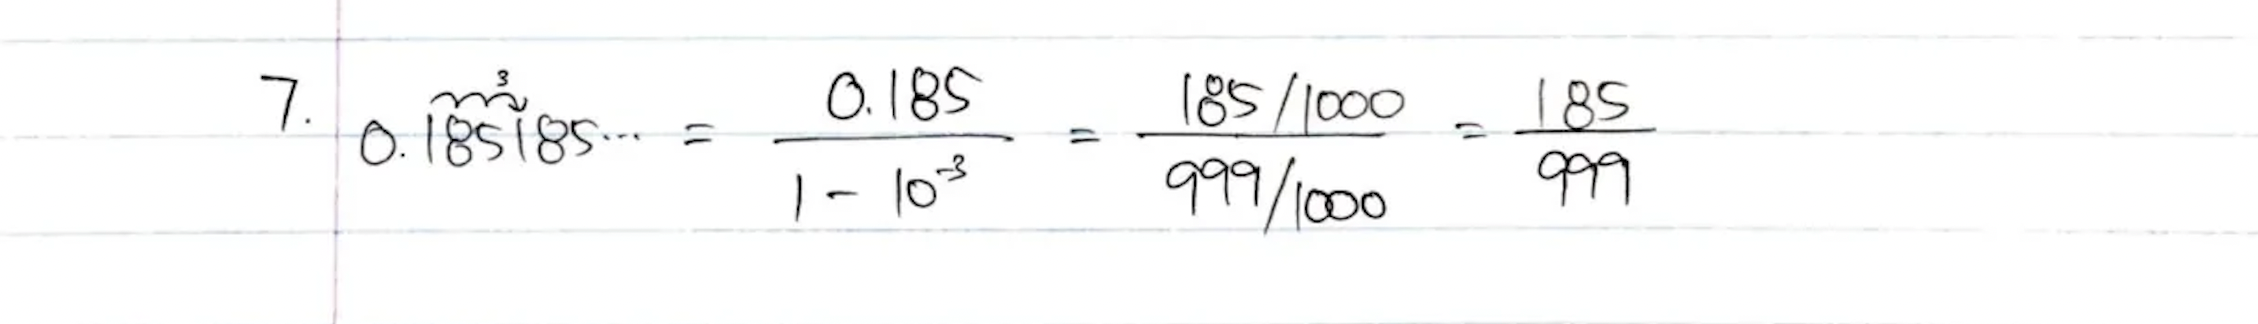 7. 0.185185... = 0.185 / 1 - 10^-3 = 185/1000 / 999/1000 = 185 / 999
3